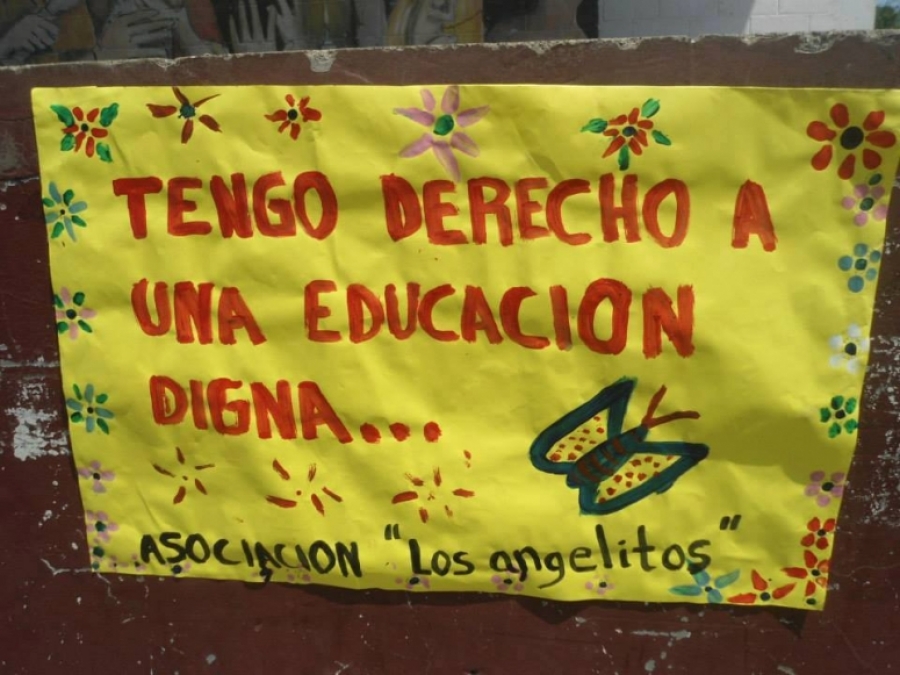 TENGO DERECHO A
UNA EDUCACION
DIGNA...
ASOCIACION "Los angelitos"